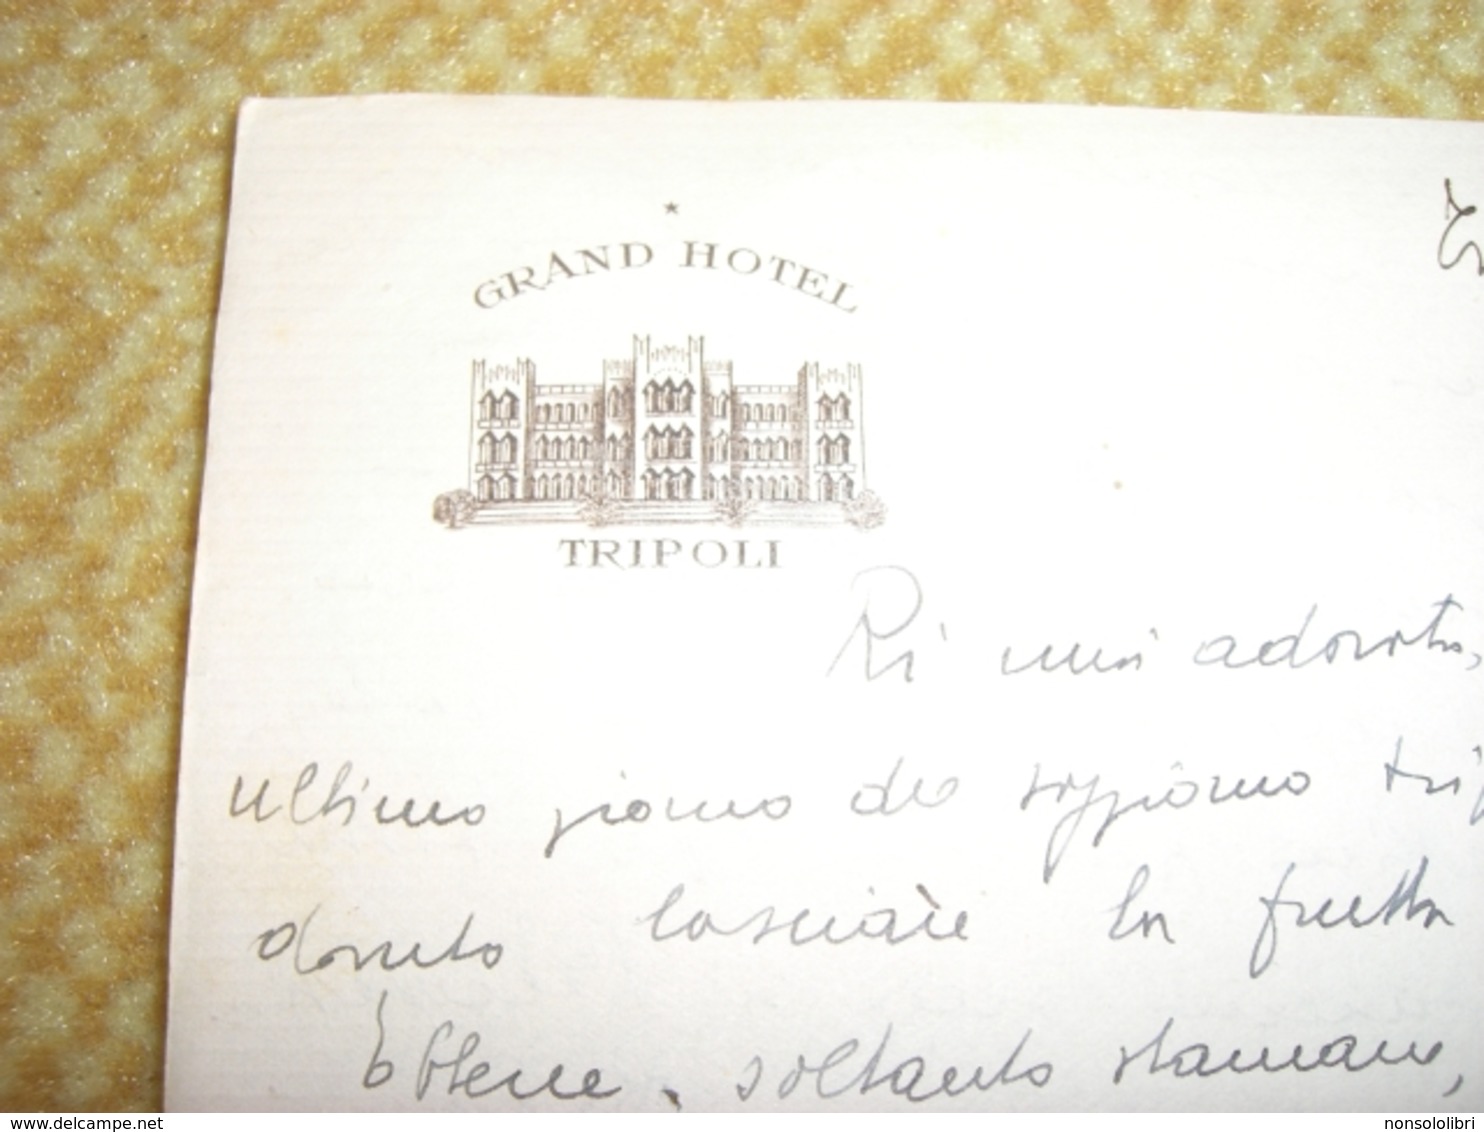 GRAND HOTEL
TRIPOLI
Ri mia adorata,
ultimo giorno di soggiorno
dovuto lasciare la frutta
Ebbene, soltanto stamane,
delcampe.net
nonsololibri